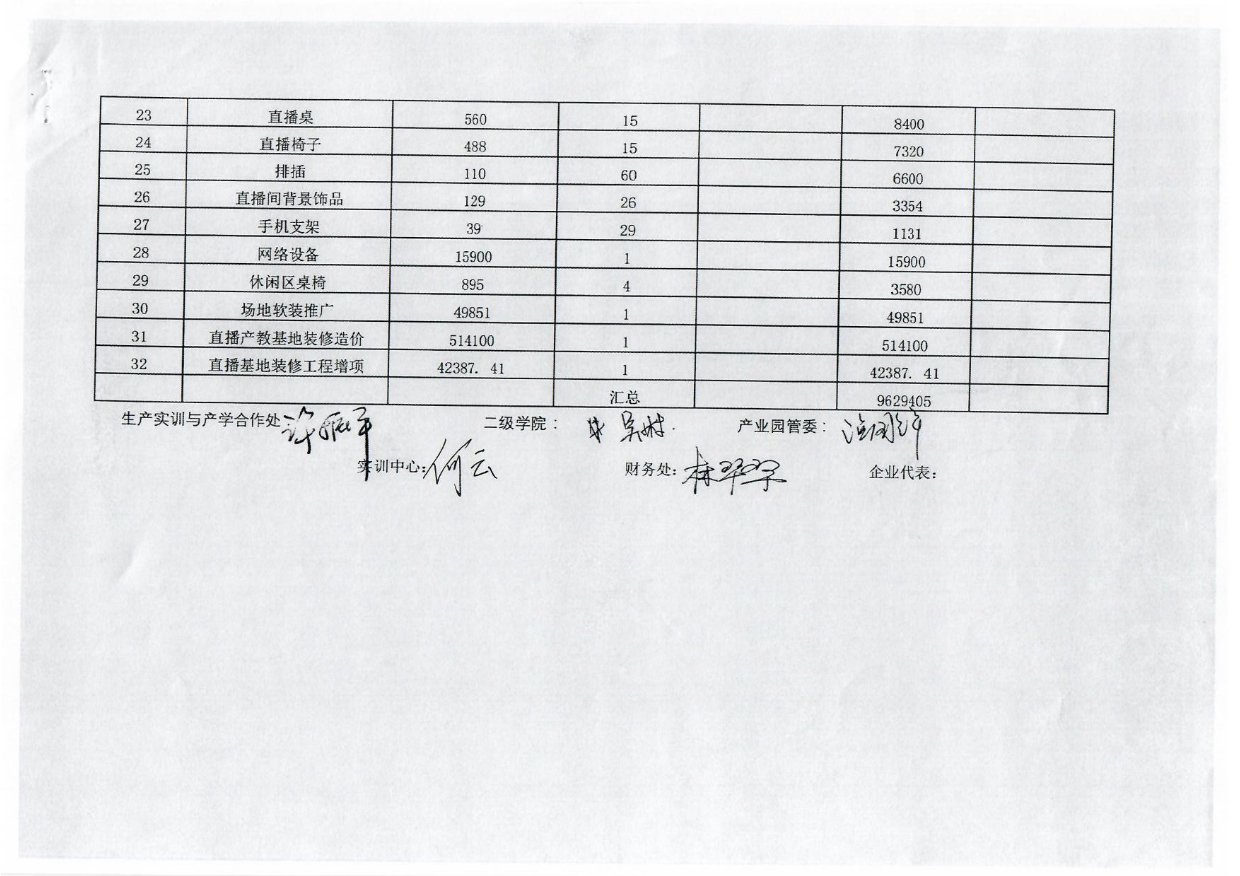 23 直播桌 560 15 8400
24 直播椅子 488 15 7320
25 排插 110 60 6600
26 直播间背景饰品 129 26 3354
27 手机支架 39 29 1131
28 网络设备 15900 1 15900
29 休闲区桌椅 895 4 3580
30 场地软装推广 49851 1 49851
31 直播产教基地装修造价 514100 1 514100
32 直播基地装修工程增项 42387. 41 1 42387. 41
汇总 9629405
生产实训与产学合作处 二级学院： 产业园管委：
实训中心： 何云 财务处： 企业代表：